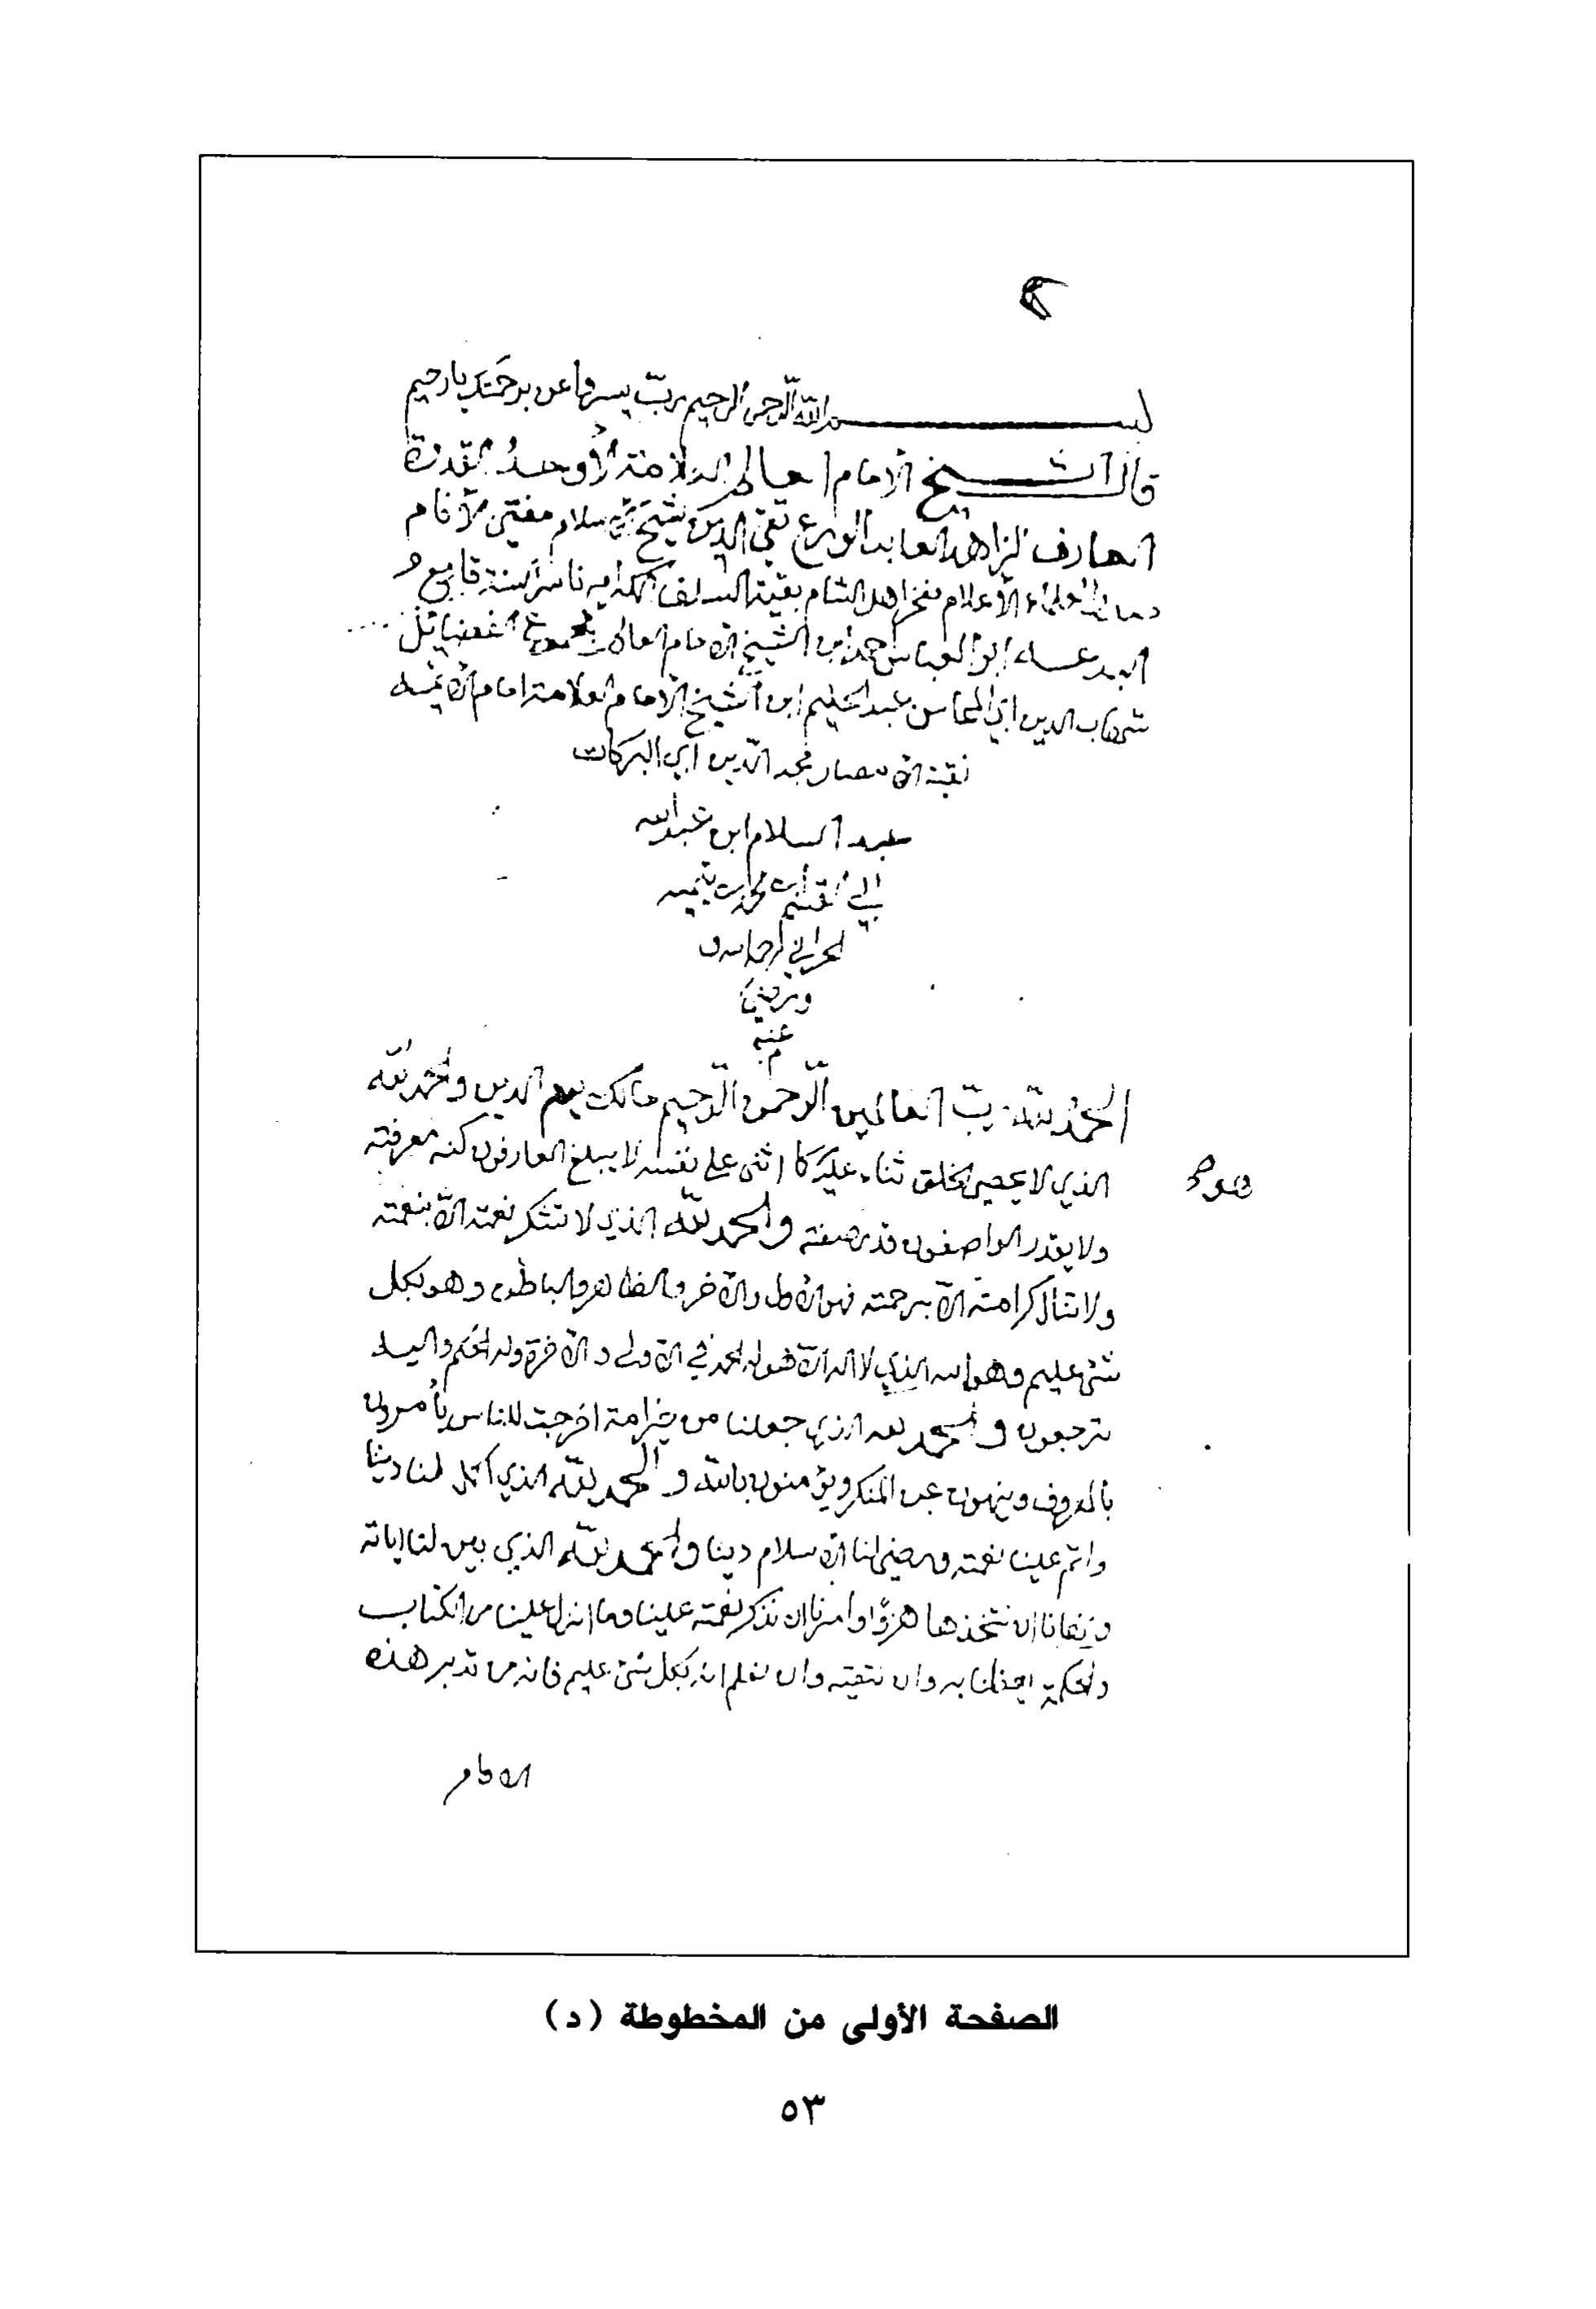 بسم الله الرحمن الرحيم رب يسر واعن برحمتك يارحيم
قال الشيخ الامام العالم العلامة الأوحد القدوة
العارف الزاهد العابد الورع تقي الدين شيخ الاسلام مفتي الأنام
العلماء الأعلام فخر اهل الشام بقية السلف الكرام ناصر السنة قامع
البدعه ابو العباس احمد ابن الشيخ الامام العالم مجموع الفضائل
شهاب الدين ابي المحاسن عبد الحليم ابن الشيخ الامام العلامة امام الائمه
الامصار مجد الدين ابي البركات
عبد السلام ابن عبد الله
ابن تيميه
الحراني
ورضي
عنه
الحمد لله رب العالمين الرحمن الرحيم مالك يوم الدين والحمد لله
الذي لا يحصي الخلق ثناء عليه كما اثنى على نفسه لا يبلغ العارفون كنه معرفته
هو
ولا يقدر الواصفون قدر صفته والحمد لله الذي لا تشكر نعمته الا بنعمته
ولا تنال كرامته الا برحمته فهو الاول والاخر والظاهر والباطن وهو بكل
شئ عليم وهو الله الذي لا اله الا هو له الحمد في الاولى والاخرة وله الحكم واليه
ترجعون والحمد لله الذي جعلنا من خير امة اخرجت للناس يأمرون
بالمعروف وينهون عن المنكر ويؤمنون بالله والحمد لله الذي اكمل لنا ديننا
واتم علينا نعمته ورضي لنا الاسلام دينا والحمد لله الذي بين لنا اياته
ونهانا ان نتخذها هزوا وامرنا ان نذكر نعمته علينا وما انزل علينا من الكتاب
والحكمة يعظنا به وان نتقيه وان نعلم انه بكل شئ عليم فانه من تدبر هذه
الصفحة الأولى من المخطوطة (د)
٥٣